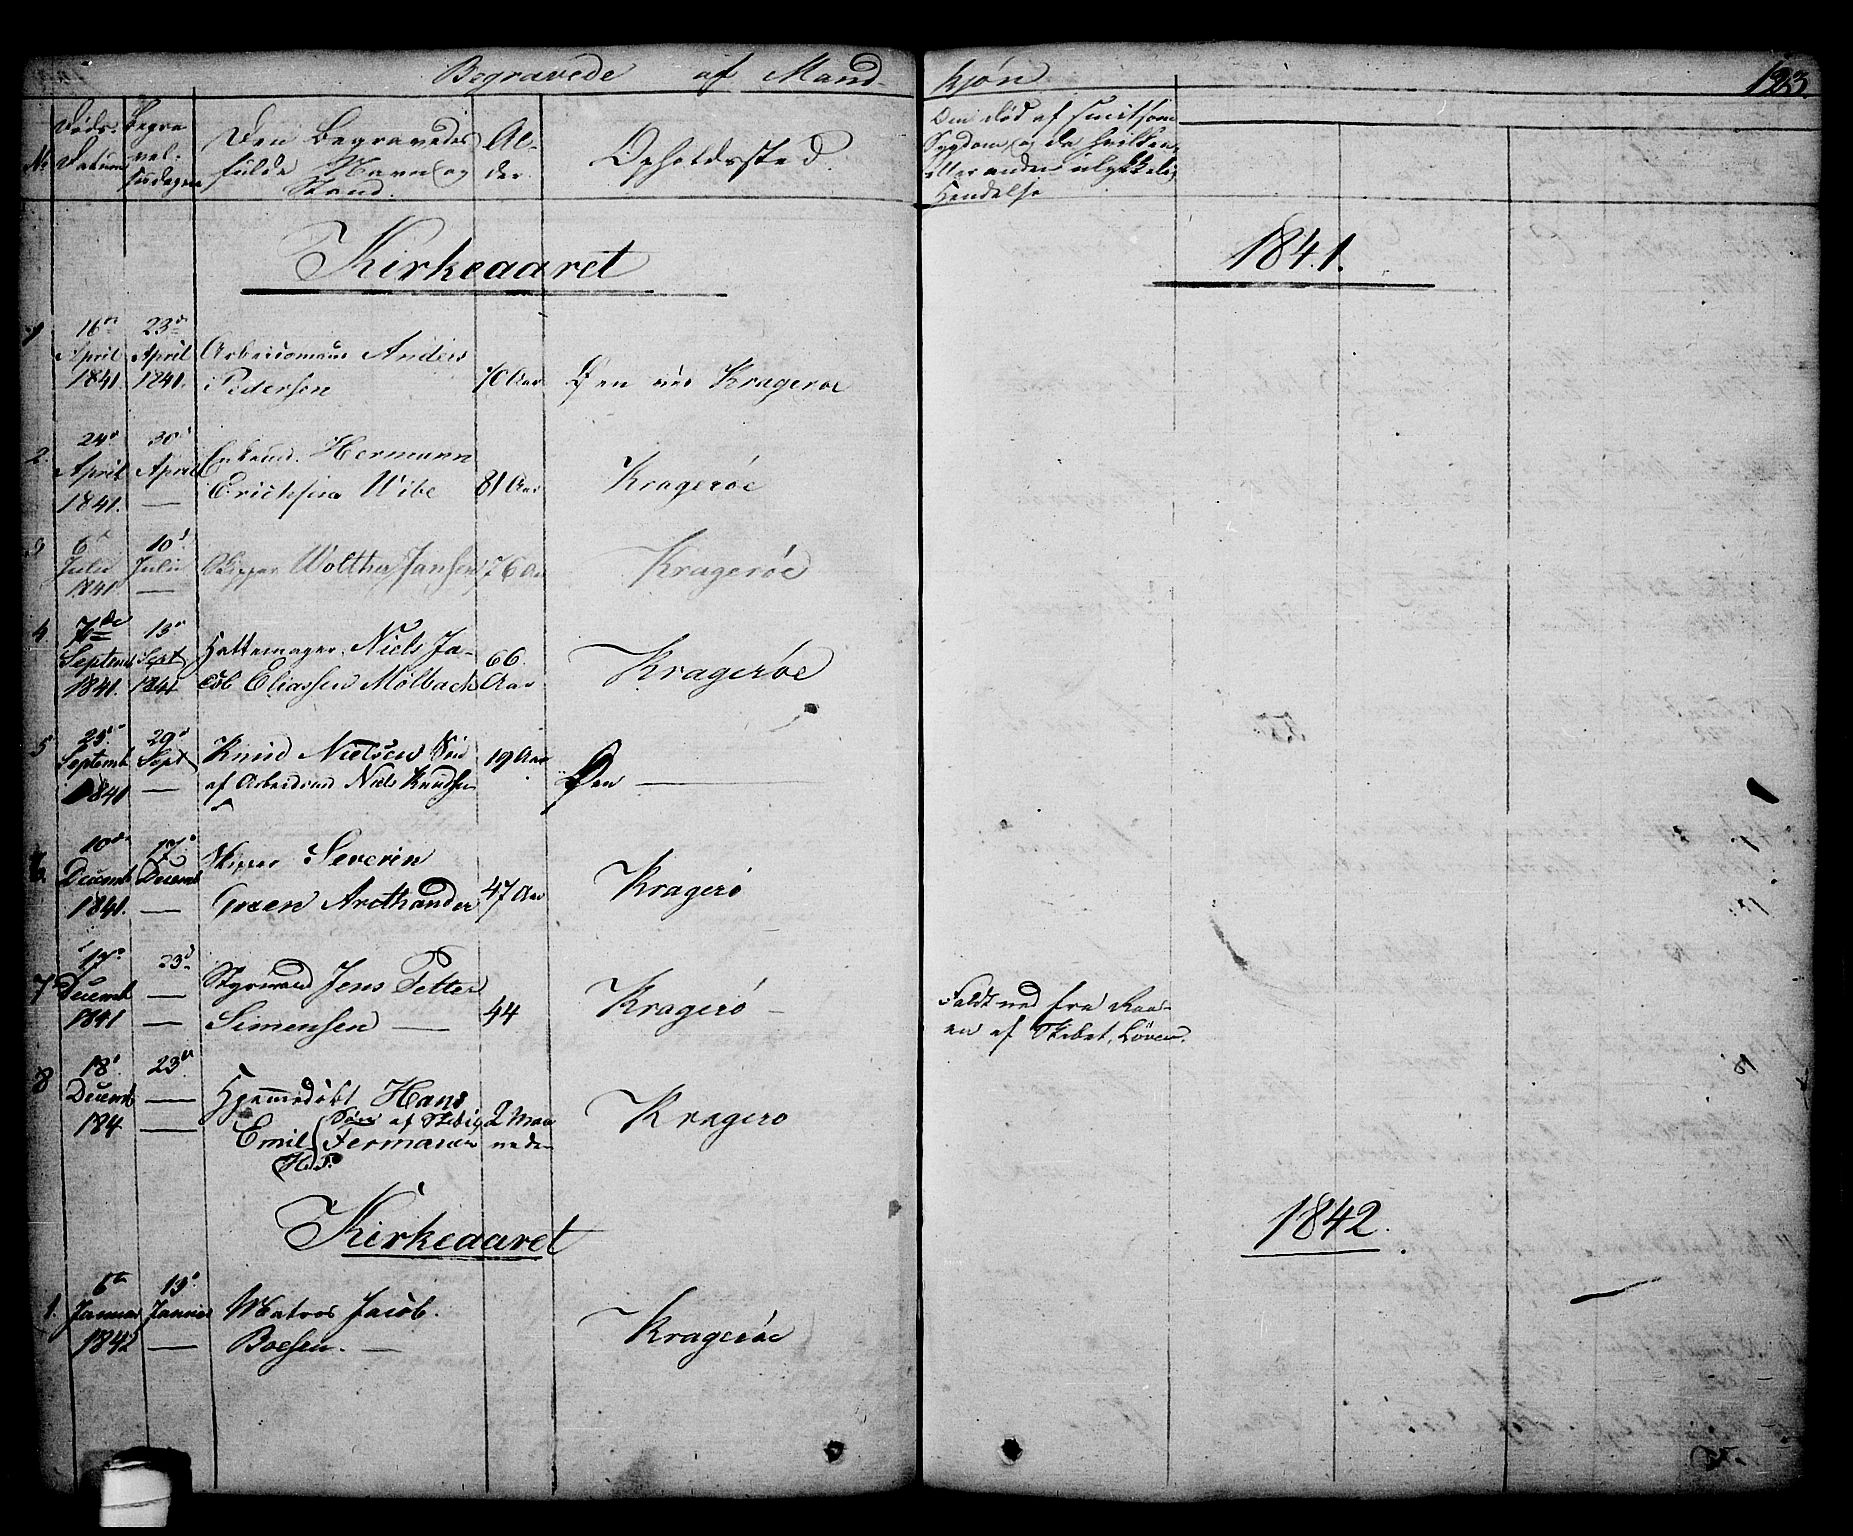 Begravede af Mandkjøn
123.
No
Døds-Datum
Begravelsesdagen
Den Begravedes fulde Navn og Stand.
Alder
Opholdssted.
Om død af smitsom
Sygdom, og da hvilken,
eller anden ulykkelig
Hendelse
Kirkeaaret 1841.
1
16de April 1841
23de April 1841.
Arbeidsmand Anders
Pedersen
70 Aar
Øen ved Kragerøe
2.
24de April 1841.
30te April —
Hermann
Erichsen Wibe
81 Aar
Kragerøe
3
6te Julii 1841
10de Julii —
Skipper Wolther Jansen
76 Aar
Kragerøe
4.
7de Septemb 1841.
13de Sept 1841
Hattemager Niels Ja-
cob Eliassen Mølback
66. Aar
Kragerøe
5
25de Septemb 1841
29de Sept —
Knud Nielsen Søn
af Arbeidsmd Niels Knudsen
19 Aar
Øen —
6
10de Decemb 1841.
17de Decemb —
Skipper Severin
Green Arethander
47 Aar
Kragerø
7
17de Decemb 1841
23de — —
Styrmand Jens Petter
Simensen —
44
Kragerø —
Faldt ned fra Raa-
en af Skibet, Løven.
8
18de Decemb 184
23de — —
Hjemmedøbt Hans
Emil (Søn af Skibs
Fermann
2 Maaneder
Kragerø
Kirkeaaret 1842.
1.
6te Januar 1842
13de Januar —
Matros Jacob
Boesen. —
Kragerøe